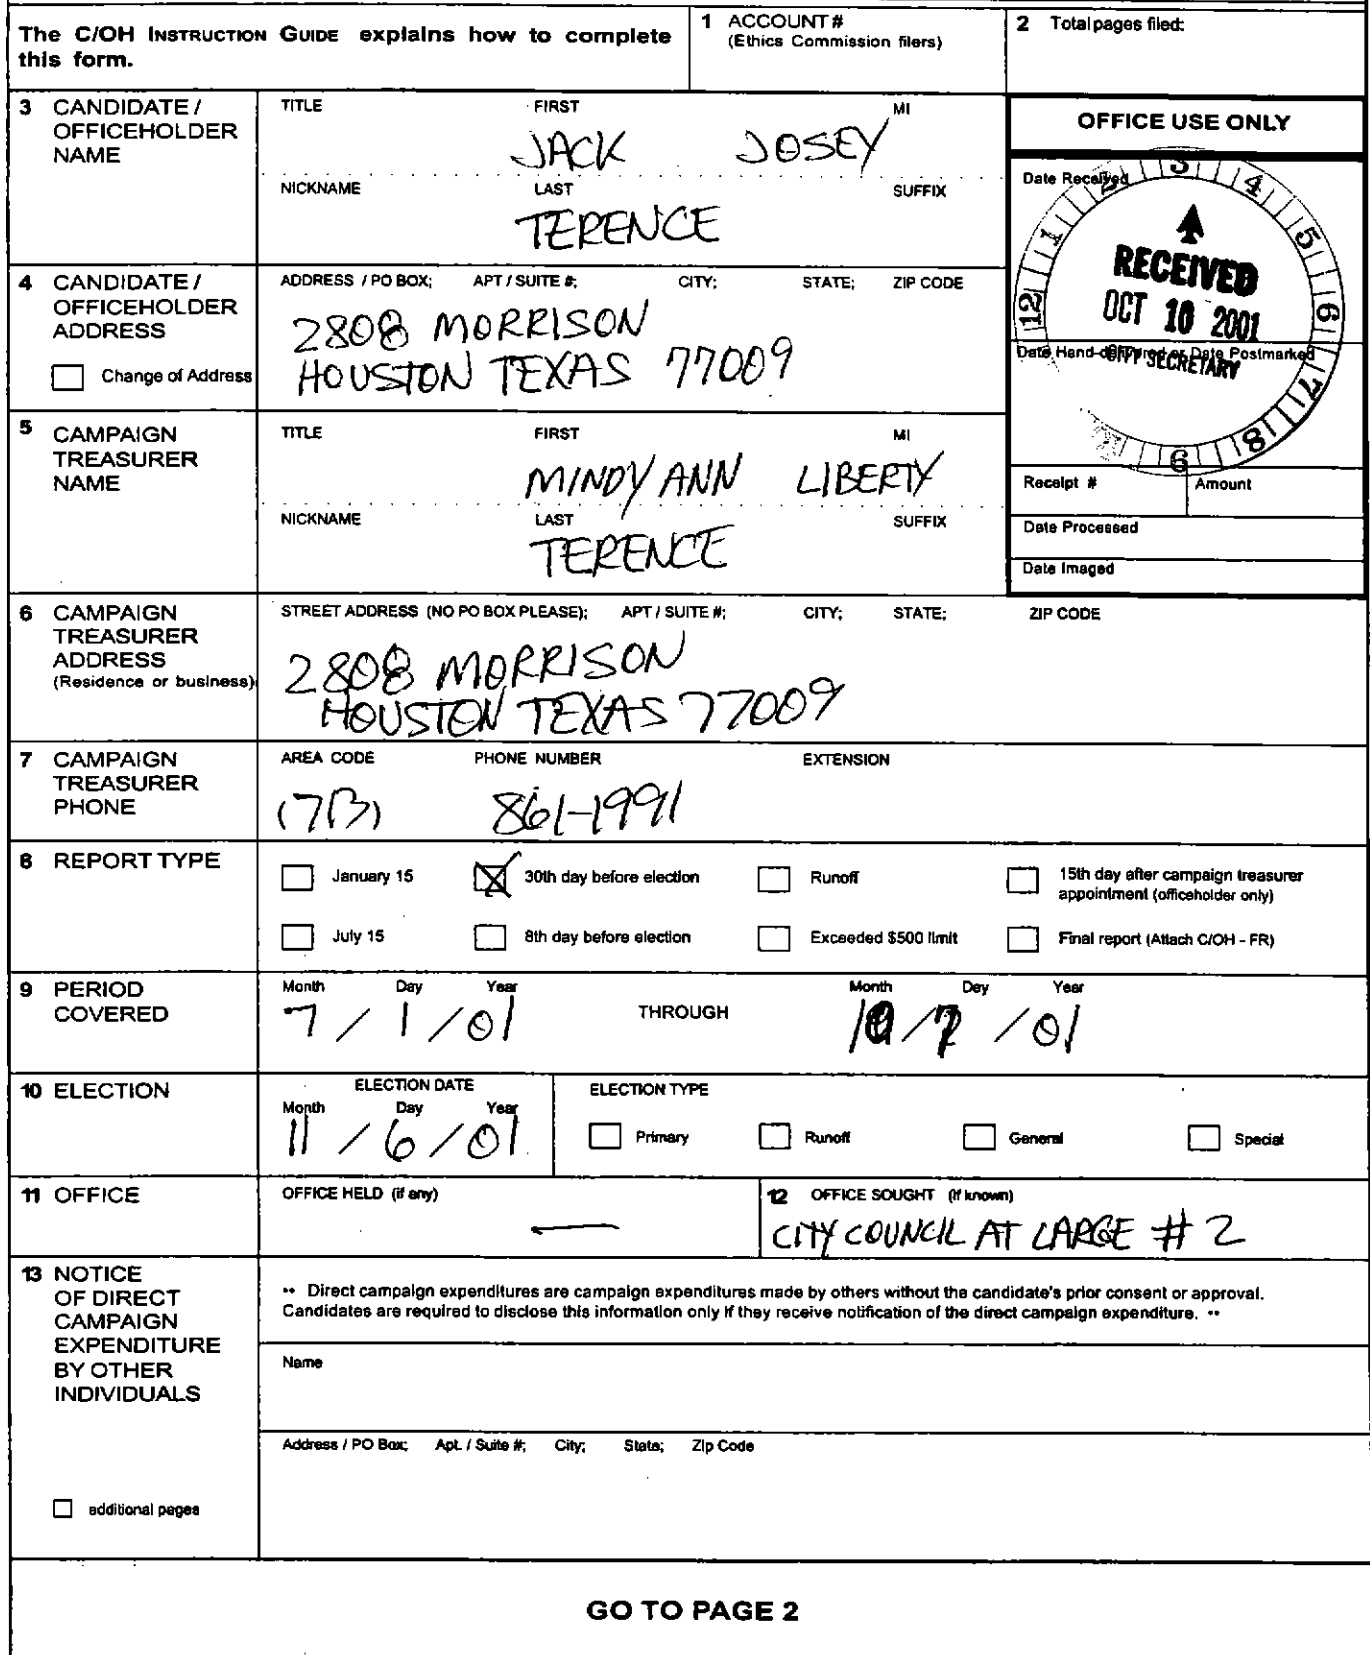 The C/OH INSTRUCTION GUIDE explains how to complete
this form.
1 ACCOUNT #
(Ethics Commission filers)
2 Total pages filed:
3 CANDIDATE /
OFFICEHOLDER
NAME
TITLE FIRST MI
JACK JOSEY
NICKNAME LAST SUFFIX
TERENCE
OFFICE USE ONLY
Date Received
12 1 2 3 4 5 6 7 8 9
RECEIVED
OCT 10 2001
CITY SECRETARY
Date Hand-delivered or Date Postmarked
Receipt # Amount
Date Processed
Date Imaged
4 CANDIDATE /
OFFICEHOLDER
ADDRESS
Change of Address
ADDRESS / PO BOX; APT / SUITE #; CITY; STATE; ZIP CODE
2808 MORRISON
HOUSTON TEXAS 77009
5 CAMPAIGN
TREASURER
NAME
TITLE FIRST MI
MINDY ANN LIBERTY
NICKNAME LAST SUFFIX
TERENCE
6 CAMPAIGN
TREASURER
ADDRESS
(Residence or business)
STREET ADDRESS (NO PO BOX PLEASE); APT / SUITE #; CITY; STATE; ZIP CODE
2808 MORRISON
HOUSTON TEXAS 77009
7 CAMPAIGN
TREASURER
PHONE
AREA CODE PHONE NUMBER EXTENSION
(713) 861-1991
8 REPORT TYPE
January 15 30th day before election Runoff 15th day after campaign treasurer
appointment (officeholder only)
July 15 8th day before election Exceeded $500 limit Final report (Attach C/OH - FR)
9 PERIOD
COVERED
Month Day Year Month Day Year
7 / 1 / 01 THROUGH 10/7 / 01
10 ELECTION
ELECTION DATE
Month Day Year
11 / 6 / 01
ELECTION TYPE
Primary Runoff General Special
11 OFFICE
OFFICE HELD (if any)
—
12 OFFICE SOUGHT (if known)
CITY COUNCIL AT LARGE # 2
13 NOTICE
OF DIRECT
CAMPAIGN
EXPENDITURE
BY OTHER
INDIVIDUALS
additional pages
•• Direct campaign expenditures are campaign expenditures made by others without the candidate's prior consent or approval.
Candidates are required to disclose this information only if they receive notification of the direct campaign expenditure. ••
Name
Address / PO Box; Apt. / Suite #; City; State; Zip Code
GO TO PAGE 2